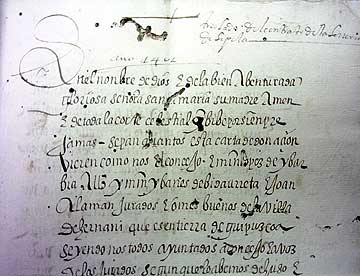 traslado del contrato de
de
año 1402
En el nonbre de dios E de la bien Abenturada
gloriosa señora santa maria su madre Amen
E de toda la corte celestial q bibe pa sienpre
Jamas - sepan quantos esta carta de donaçion
vieren como nos el conçejo E min lopez de ybar
bia Allde y min ybañes de bidaurreta E Joan
Alaman Jurados E omes buenos de la villa
de hernani que es en tierra de guipuzcoa
seyendo nos todos ayuntados a conçejo E a voz
de los Jurados segun que lo abemos de